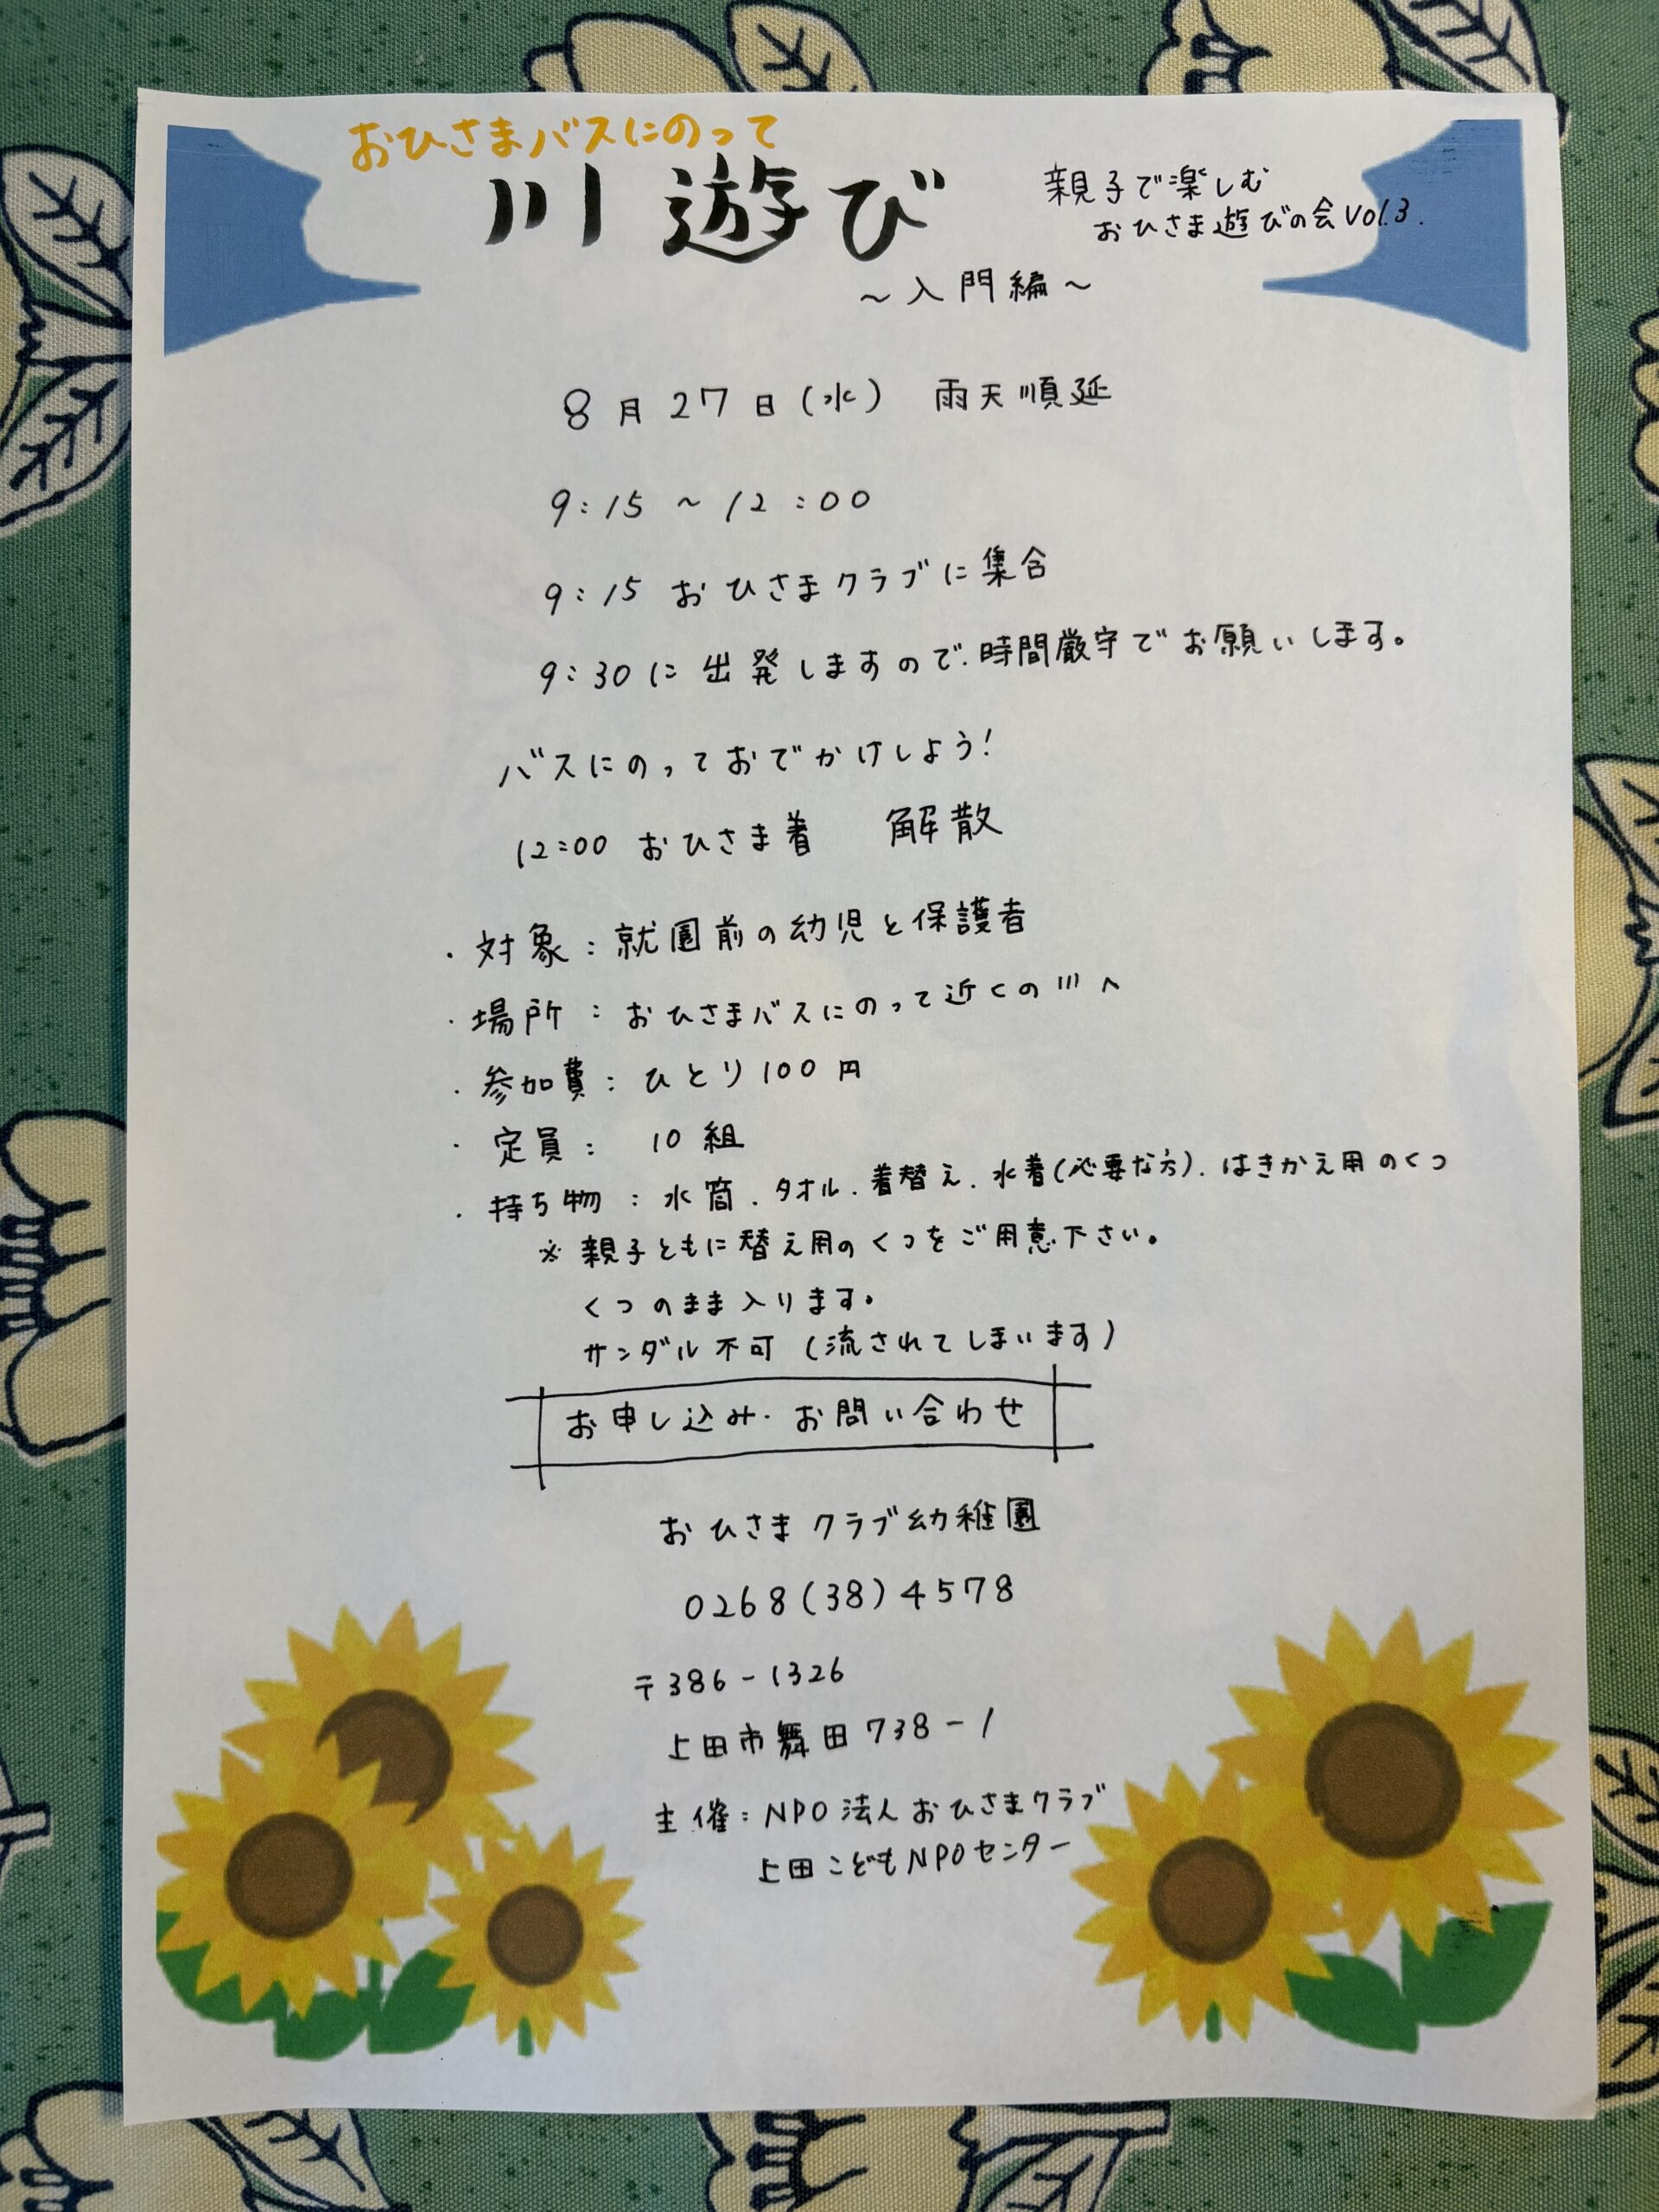 おひさまバスにのって
川遊び
親子で楽しむ
おひさま遊びの会Vol.3.
～入門編～
8月27日(水) 雨天順延
9:15～12:00
9:15 おひさまクラブに集合
9:30に出発しますので、時間厳守でお願いします。
バスにのっておでかけしよう!
12:00 おひさま着 解散
・対象:就園前の幼児と保護者
・場所:おひさまバスにのって近くの川へ
・参加費:ひとり100円
・定員: 10組
・持ち物:水筒、タオル、着替え、水着(必要な方)、はきかえ用のくつ
※親子ともに替え用のくつをご用意下さい。
くつのまま入ります。
サンダル不可(流されてしまいます)
お申し込み・お問い合わせ
おひさまクラブ幼稚園
0268(38)4578
〒386-1326
上田市舞田738-1
主催:NPO法人おひさまクラブ
上田こどもNPOセンター